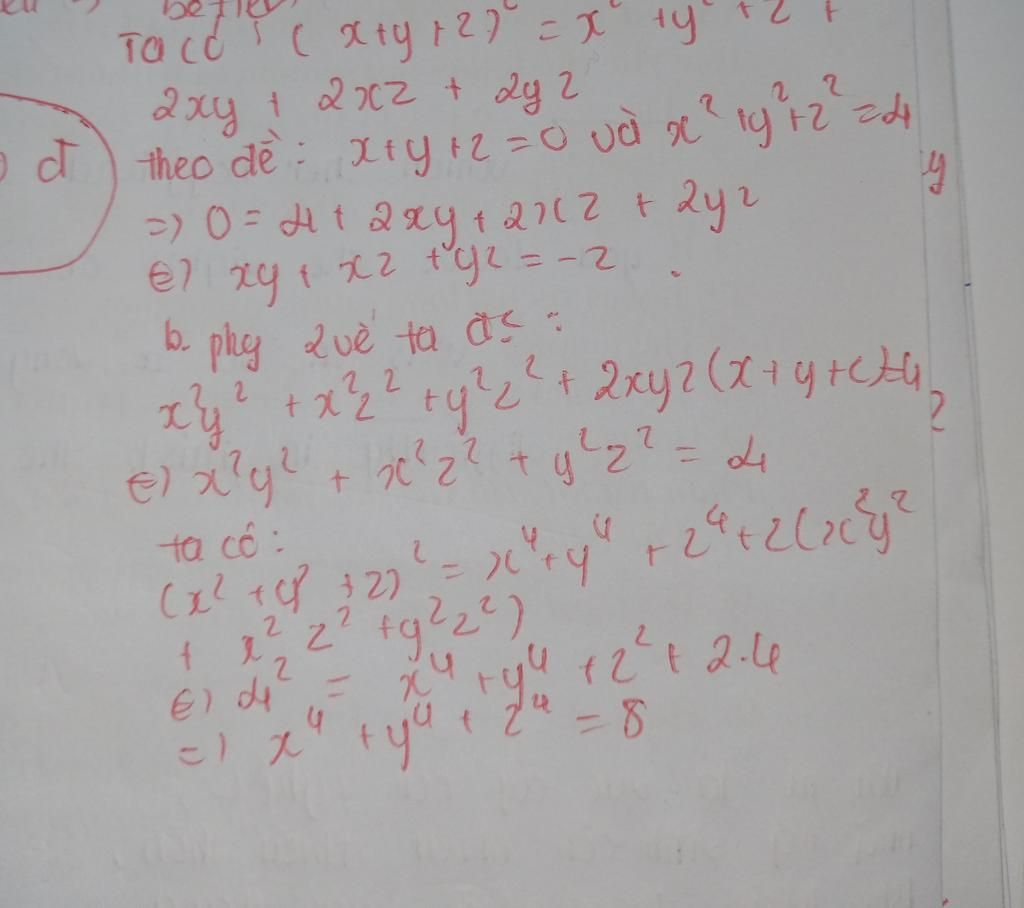 better
Ta có : ( x+y+z)² = x² +y² + z +
2xy + 2xz + 2yz
đ
theo đề : x+y+z = 0 và x² +y²+z² = 4
y
=> 0 = 4 + 2xy + 2xz + 2yz
<=> xy + xz + yz = -2 .
b. phg 2 vế ta đc :
x²y² + x²z² + y²z² + 2xyz (x+y+c)=4
<=> x²y² + x²z² + y²z² = 4
ta có :
(x² + y² + z)² = x⁴+y⁴ + z⁴+2(x²y²
+ x²z² + y²z²)
<=> 4² = x⁴ + y⁴ + z² + 2.4
=> x⁴ + y⁴ + z⁴ = 8